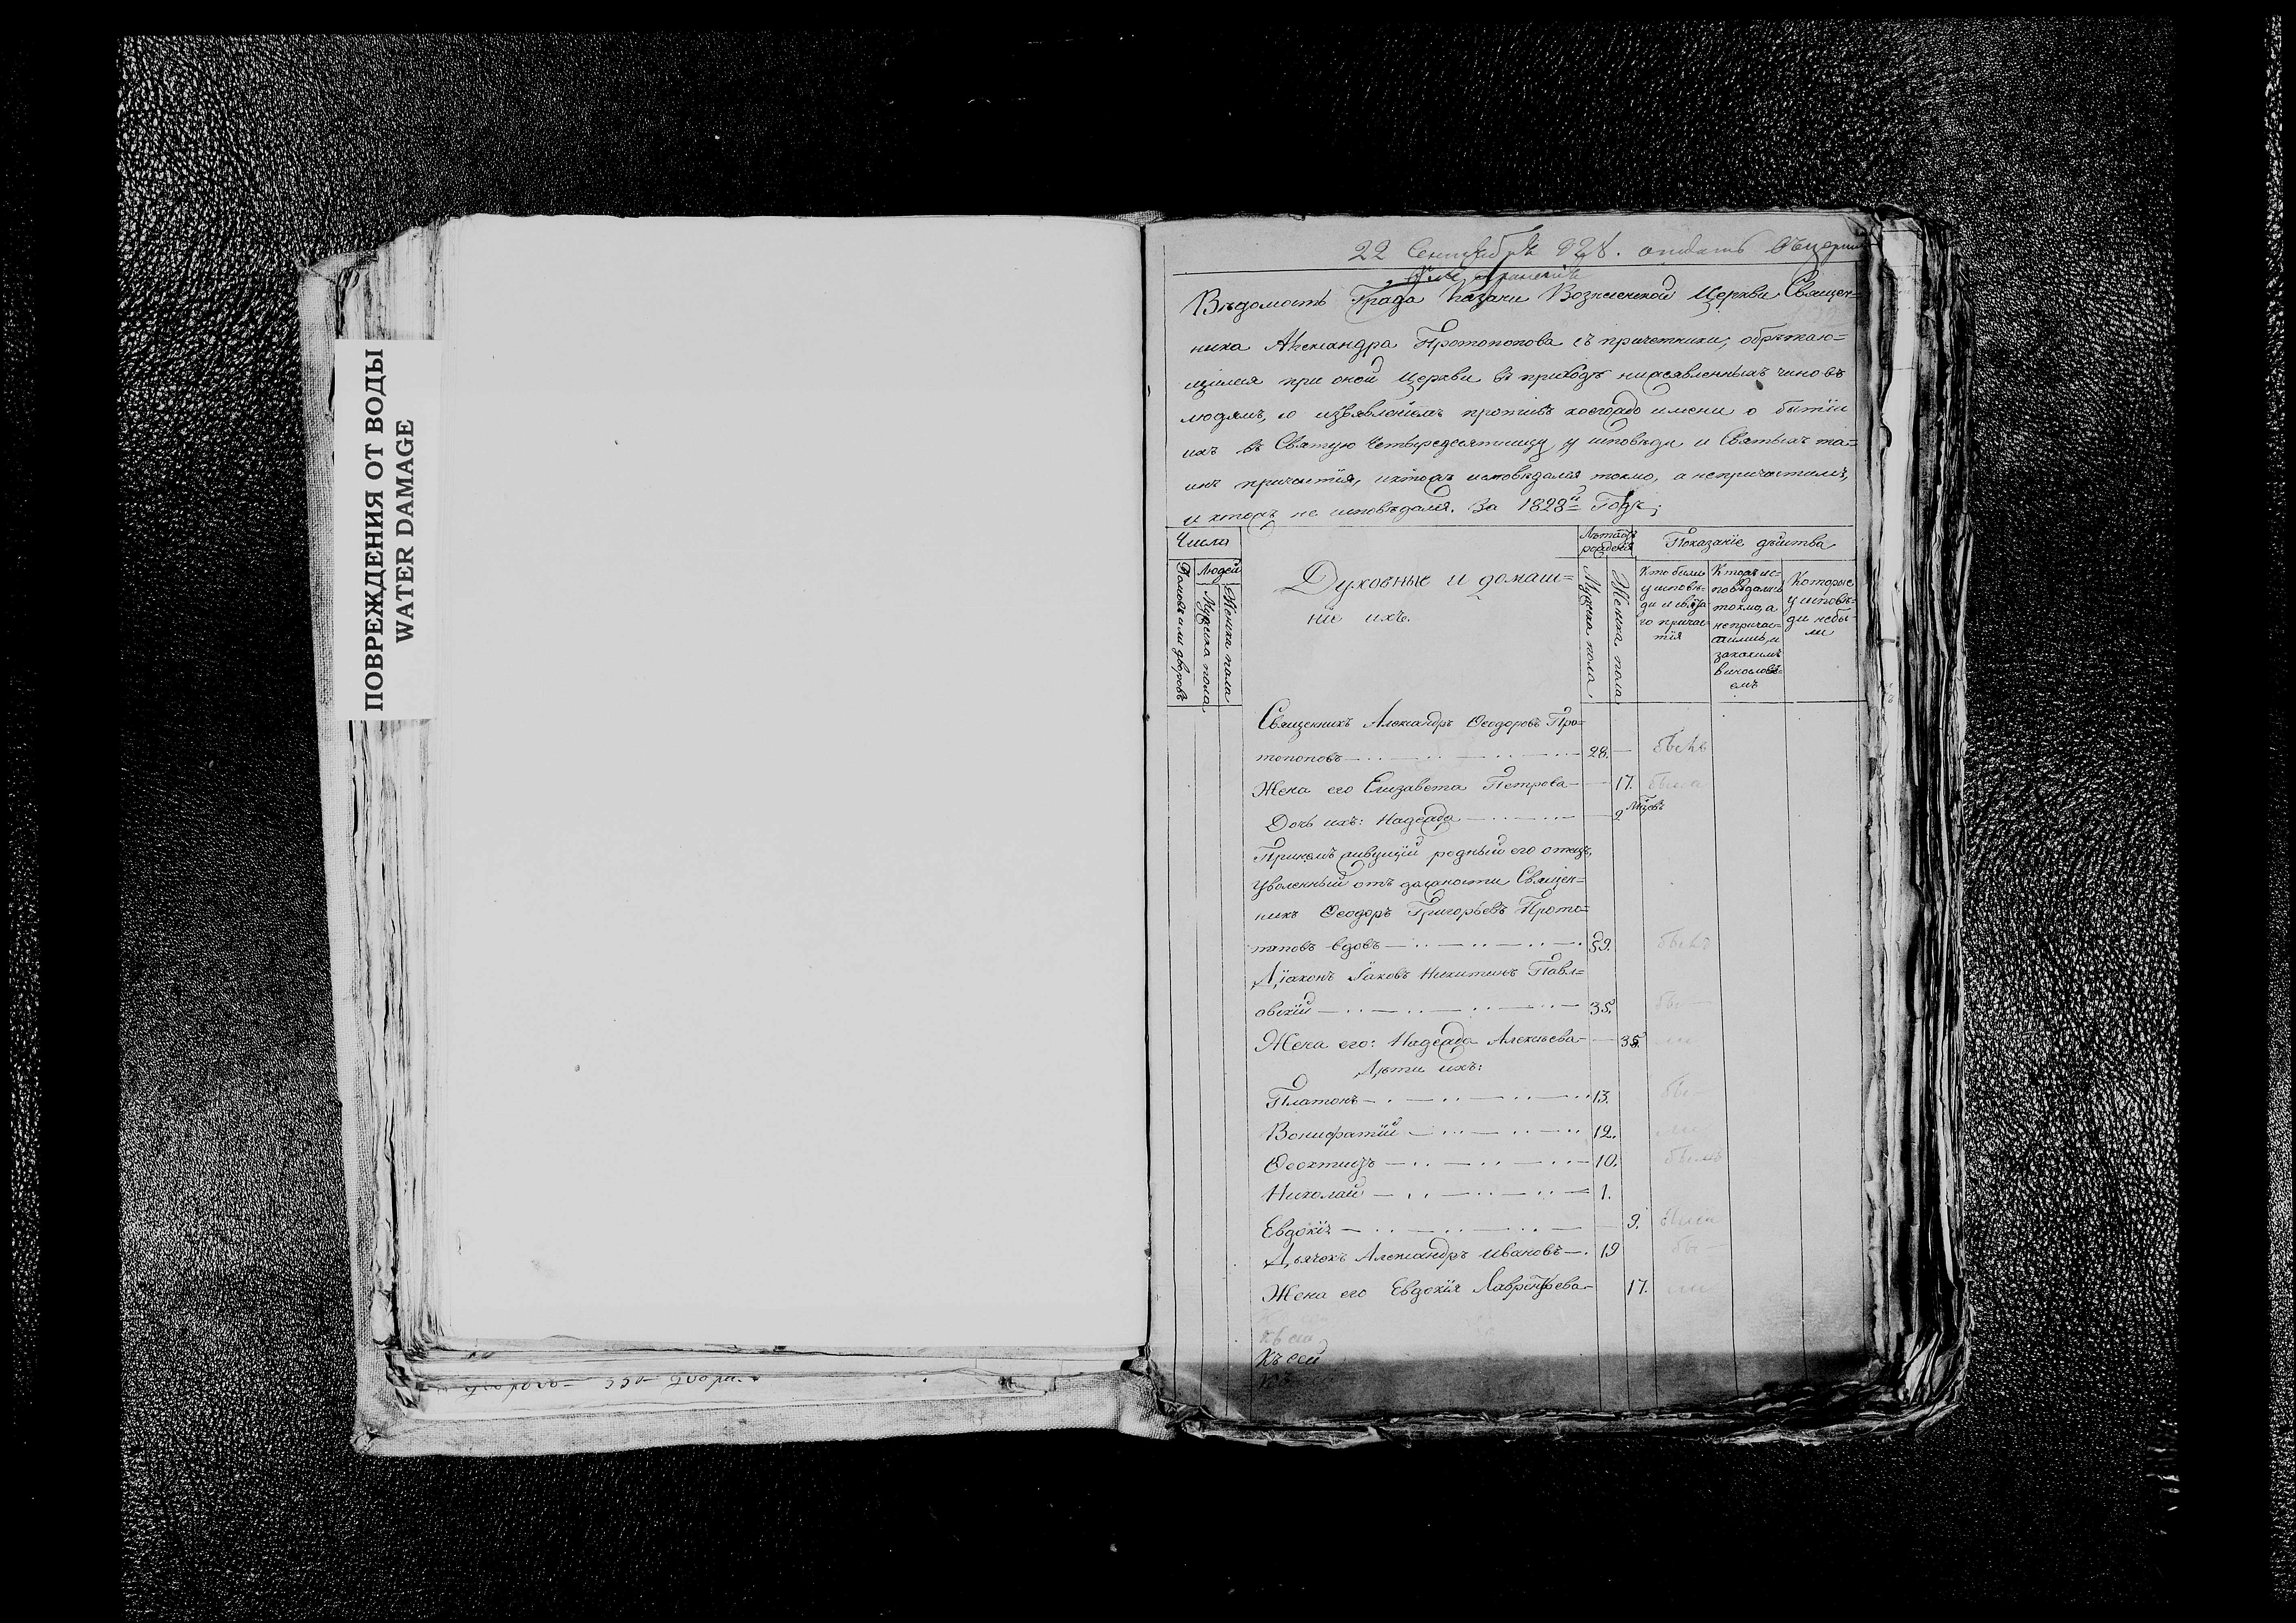 ПОВРЕЖДЕНИЯ ОТ ВОДЫ
WATER DAMAGE
22 Сентября 828. отдать
Вѣдомость Града Казани Вознесенской Церкви Священ=
ника Александра Протопопова съ причетники, обрѣтаю=
щимся при оной Церкви въ приходѣ нижеявленныхъ чиновъ
людямъ, со изъявленіемъ противъ коегождо имени о бытіи
ихъ въ Святую Четыредесятницу у исповѣди и Святыхъ та=
инъ причастія, и кто жъ исповѣдался токмо, а не причастился,
и кто жъ не исповѣдался. За 1828й Годъ;
Число
Людей
Домовъ или дворовъ
Мужска пола
Женска пола
Духовные и домаш=
ніе ихъ.
Лѣта отъ
рожденія
Мужска пола
Женска пола
Показаніе дѣйства
Кто были
у исповѣ=
ди и свята
го причас
тія
Кто жъ ис=
повѣдались
токмо, а
не причас=
тились, и
за какимъ
винослові=
емъ
Которые
у исповѣ=
ди не бы=
ли
Священникъ Александръ Ѳеодоровъ Про=
топоповъ 28. — былъ
Жена его Елизавета Петрова — 17. была
Дочь ихъ: Надежда — 2 мѣсяцовъ
При немъ живущій родный его отецъ,
уволенный отъ должности Священ=
никъ Ѳеодоръ Григорьевъ Прото=
поповъ вдовъ 59. былъ
Діаконъ Іаковъ Никитинъ Павл=
овскій 35. бы—
Жена его: Надежда Алексѣева — 35. ли
Дѣти ихъ:
Платонъ 13. бы—
Вонифатій 12. ли
Ѳеоктистъ 10. былъ
Николай 1.
Евдокія — 9. была
Дьячокъ Александръ Ивановъ 19 бы—
Жена его Евдокія Лаврентьева 17. ли
Къ сей